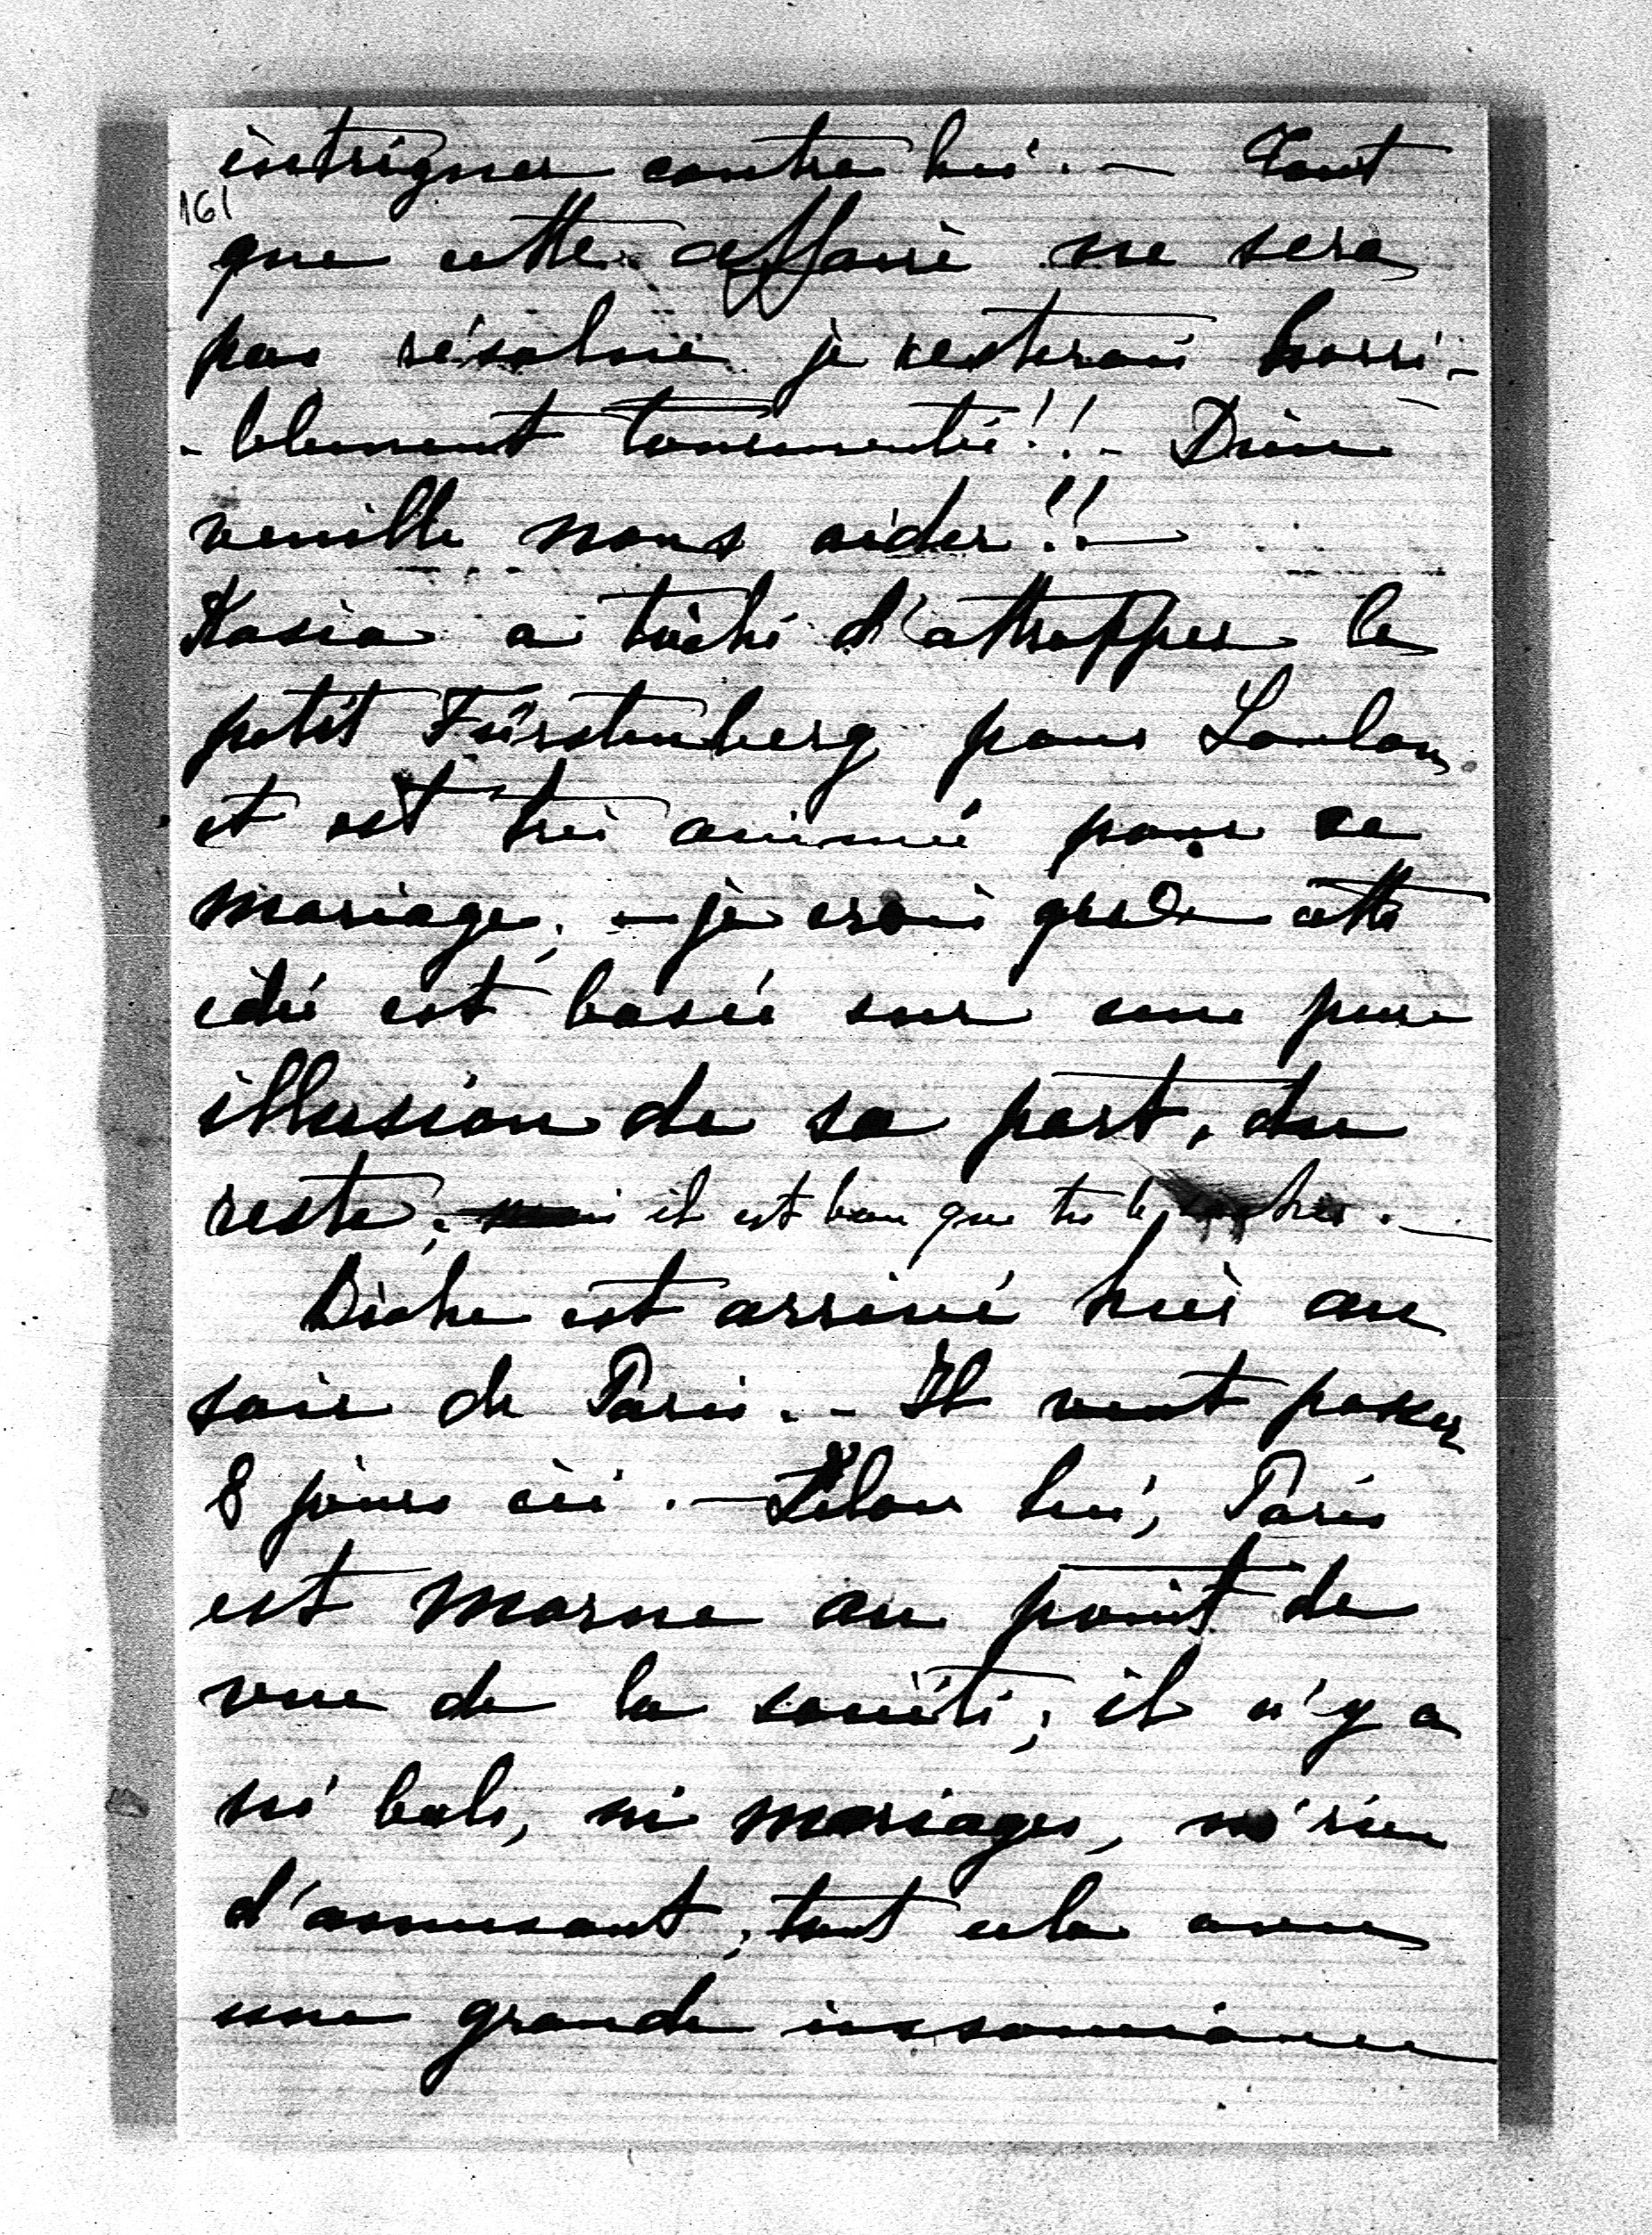 intriguer contre lui. — Tant
161
que cette affaire ne sera
pas résolue je resterai horri-
-blement tourmentée!! - Dieu
veuille nous aider!! —
Kasia a tâché d'attrapper le
petit Fürstenberg pour Loulou
et est très animée pour ce
mariage; - je crois que cette
idée est basée sur une pure
illusion de sa part, du
reste; il est bon que tu le . —
est arrivé hier au
soir de Paris. - Il veut passer
8 jours ici. — Selon lui, Paris
est morne au point de
vue de la société; il n'y a
ni bals, ni mariages, ni rien
d'amusant; tout cela avec
une grande insouciance